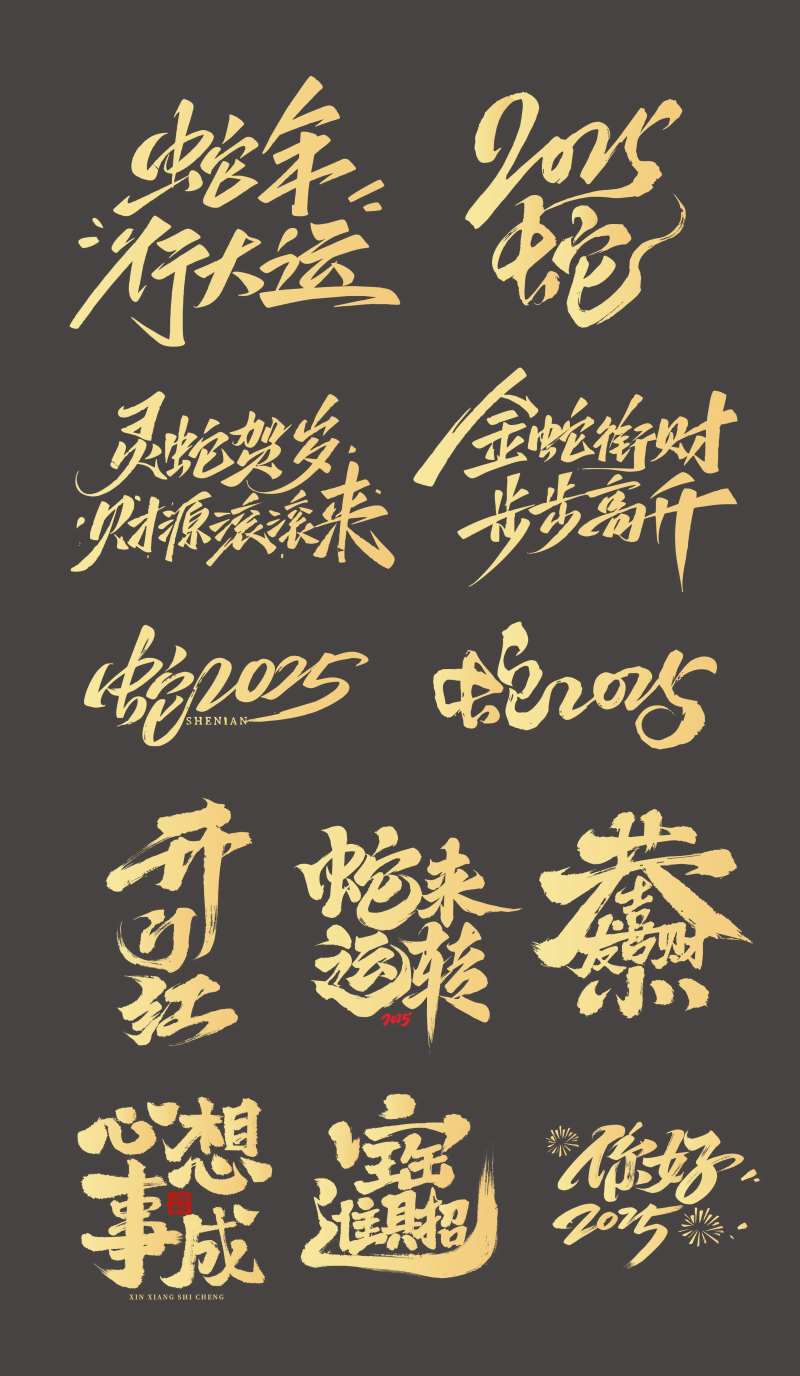 蛇年
行大运
2025
蛇
灵蛇贺岁
财源滚滚来
金蛇衔财
步步高升
蛇2025
SHENIAN
蛇2025
开
门
红
蛇来
运转
2025
恭喜发财
心想
事成
XIN XIANG SHI CHENG
招財進宝
你好
2025